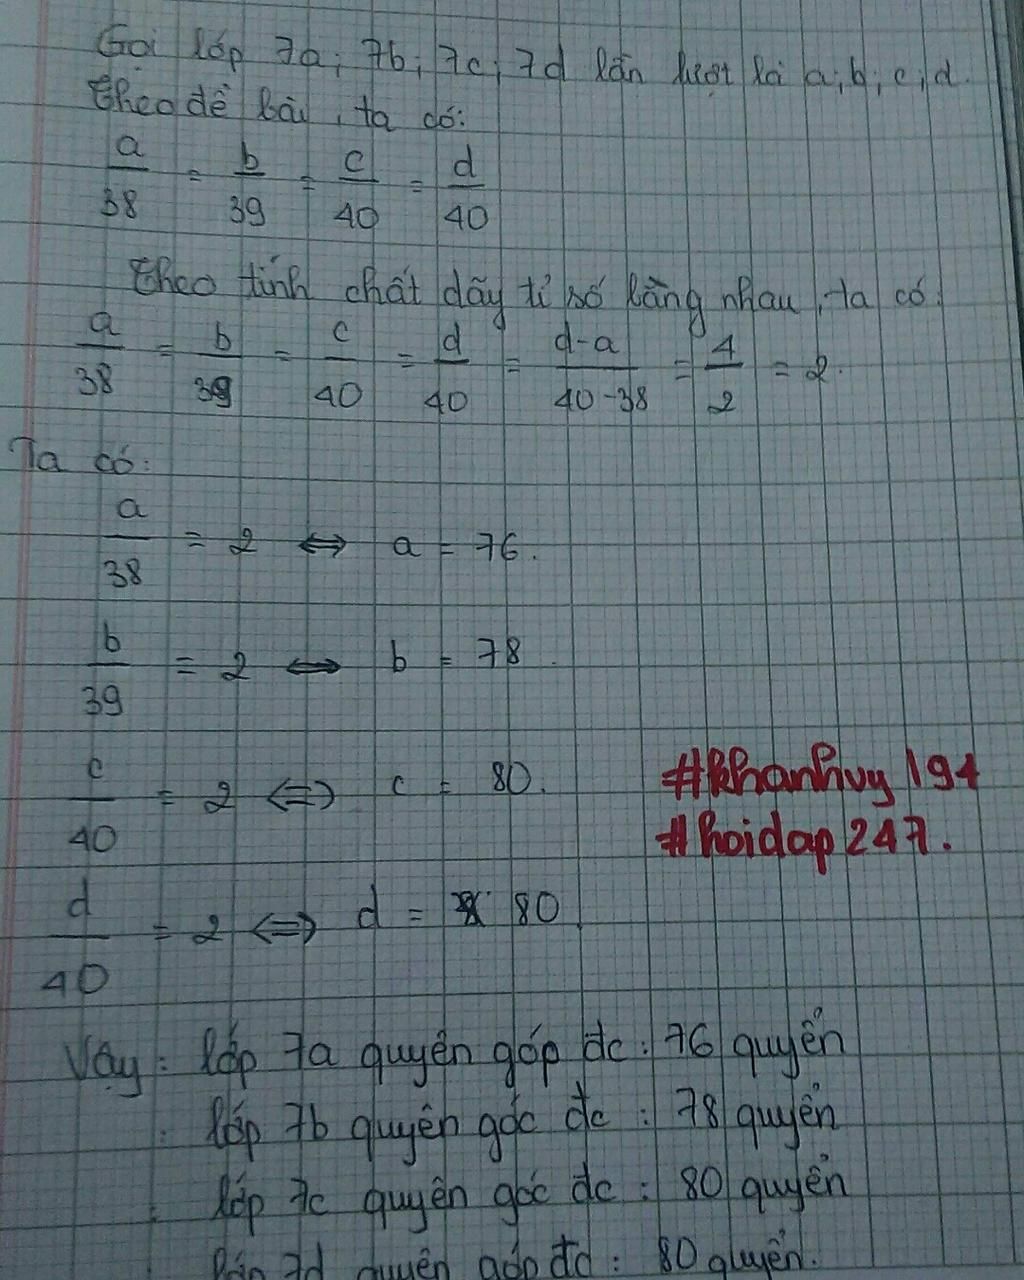 Gọi lớp 7a; 7b; 7c; 7d lần lượt là a; b; c; d.
theo đề bài, ta có:
a/38 = b/39 = c/40 = d/40
theo tính chất dãy tỉ số bằng nhau, ta có
a/38 = b/39 = c/40 = d/40 = d-a/40-38 = 4/2 = 2.
Ta có:
a/38 = 2 ⇔ a = 76.
b/39 = 2 ⇔ b = 78
c/40 = 2 ⇔ c = 80.
#khanhvy194
#hoidap247.
d/40 = 2 ⇔ d = 80
Vậy: lớp 7a quyên góp đc: 76 quyển
: lớp 7b quyên góc đc : 78 quyển
: lớp 7c quyên góc đc : 80 quyển
lớp 7d quyên góp đc : 80 quyển.